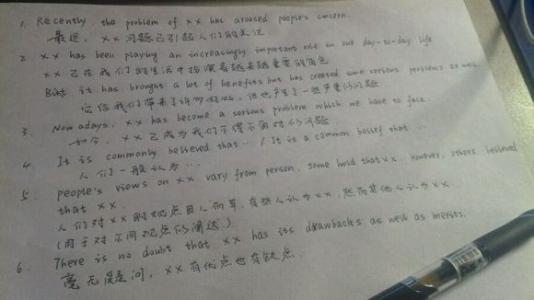 1. Recently the problem of xx has aroused people's concern.
最近, xx问题已引起人们的关注
2. xx has been playing an increasingly important role in our day-to-day life
xx已在我们的生活中扮演着越来越重要的角色
But it has brought a lot of benefits but has created some serious problems as well.
它给我们带来了许多好处, 但也产生了一些严重的问题
3. Nowadays, xx has become a serious problem which we have to face.
如今, xx已成为我们不得不面对的问题
4. It is commonly believed that... / It is a common belief that...
人们一般认为...
5. people's views on xx vary from person, some hold that xx. However, others believed
that xx.
人们对xx的观点因人而异, 有些人认为xx, 然而其他人认为xx.
(用于对不同观点的阐述)
6. There is no doubt that xx has its drawbacks as well as merits.
毫无疑问, xx有优点也有缺点.